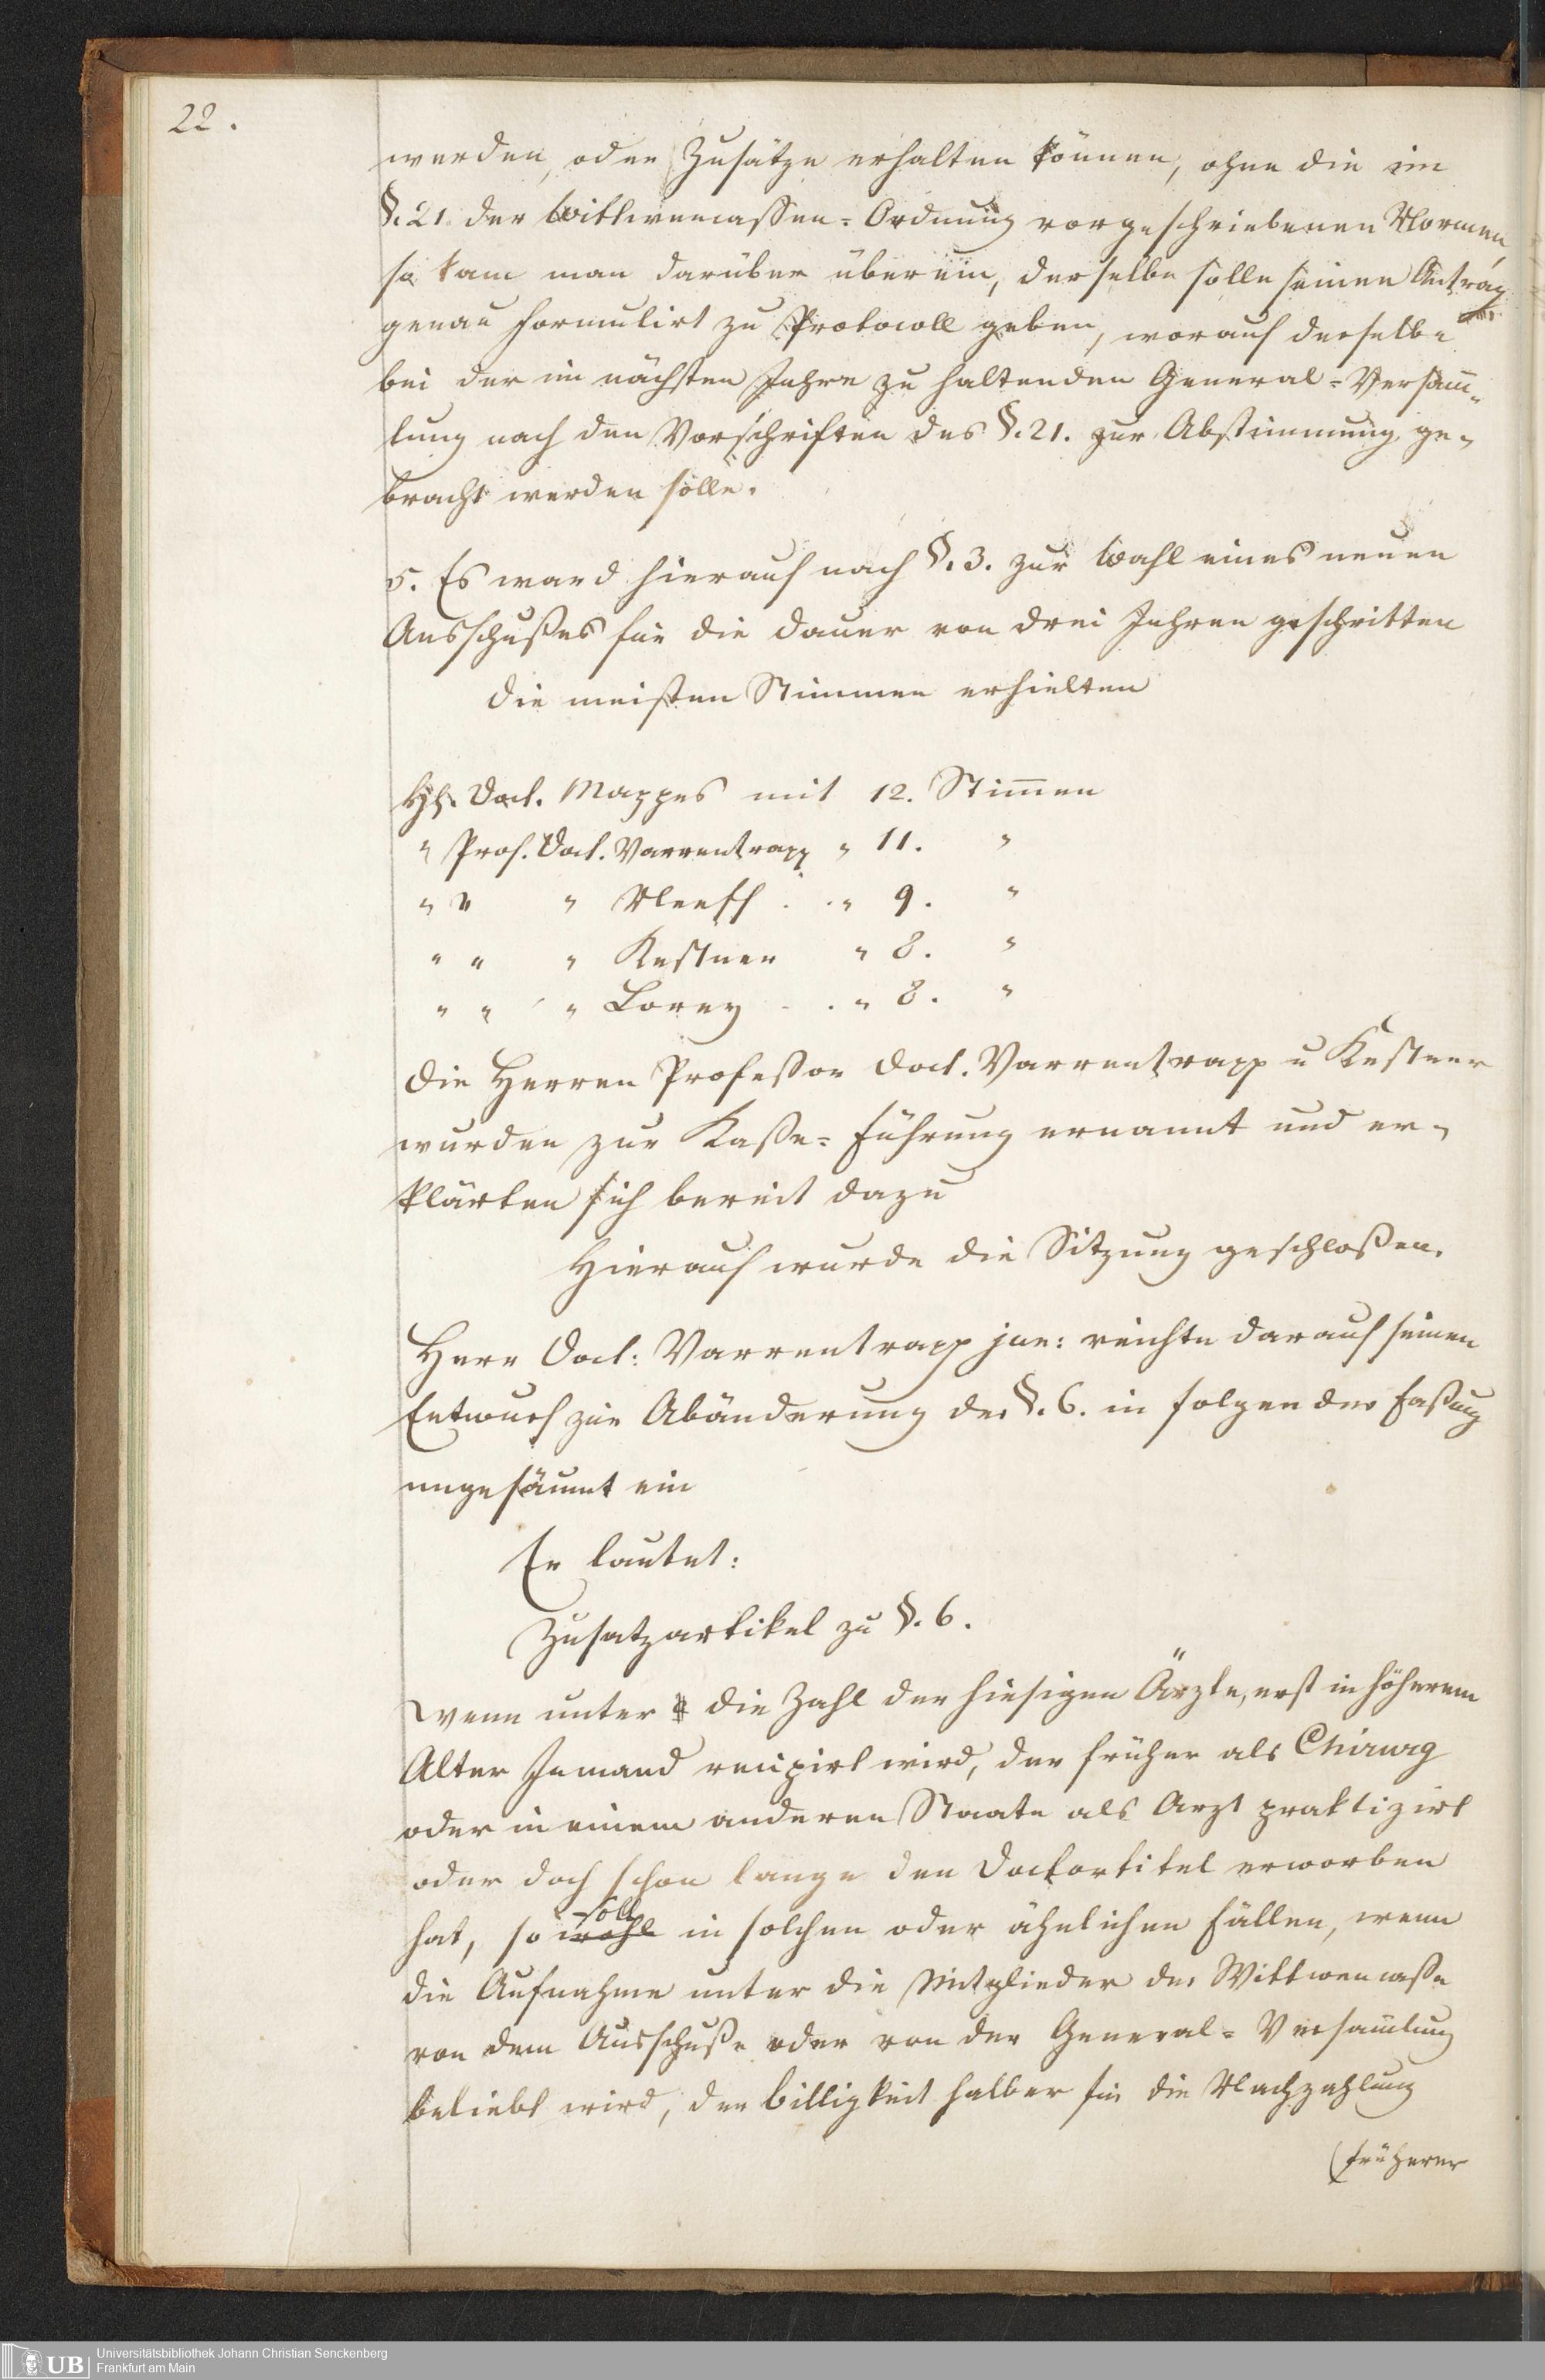 22.
werden, oder Zusätze erhalten können, ohne die im
§. 21. der Wittwencassen-Ordnung vorgeschriebenen Normen,
so kam man darüber überein, derselbe solle seinen Antrag
genau formulirt zu Protocoll geben, worauf derselbe
bei der im nächsten Jahre zu haltenden General-Versam̅-
lung nach den Vorschriften des §. 21. zur Abstimmung ge-
bracht werden solle.
5. Es ward hierauf nach §. 3. zur Wahl eines neuen
Ausschußes für die Dauer von drei Jahren geschritten
Die meisten Stimmen erhielten
HH. Doct. Mappes mit 12. Stim̅en
" Prof. Doct. Varrentrapp " 11. "
" " " Neeff . . " 9. "
" " " Kestner " 8. "
" " " Lorey . . " 8. "
Die Herren Professor Doct. Varrentrapp u Kestner
wurden zur Kasse-Führung ernannt und er-
klärten sich bereit dazu
Hierauf wurde die Sitzung geschloßen.
Herr Doct: Varrentrapp jun: reichte darauf seinen
Entwurf zur Abänderung des §. 6. in folgender Faßung
ungesäumt ein
Er lautet:
Zusatzartikel zu §. 6.
Wenn unter die Zahl der hiesigen Ärzte, erst in höherem
Alter Jemand recipirt wird, der früher als Chirurg
oder in einem anderen Staate als Arzt praktizirt
oder doch schon lange den Doctortitel erworben
soll
hat, so wohl in solchen oder ähnlichen Fällen, wenn
die Aufnahme unter die Mitglieder der Wittwencasse
von dem Ausschuße oder von der General-Versam̅lung
beliebt wird, der Billigkeit halber für die Nachzahlung
(früherer
Universitätsbibliothek Johann Christian Senckenberg
UB Frankfurt am Main